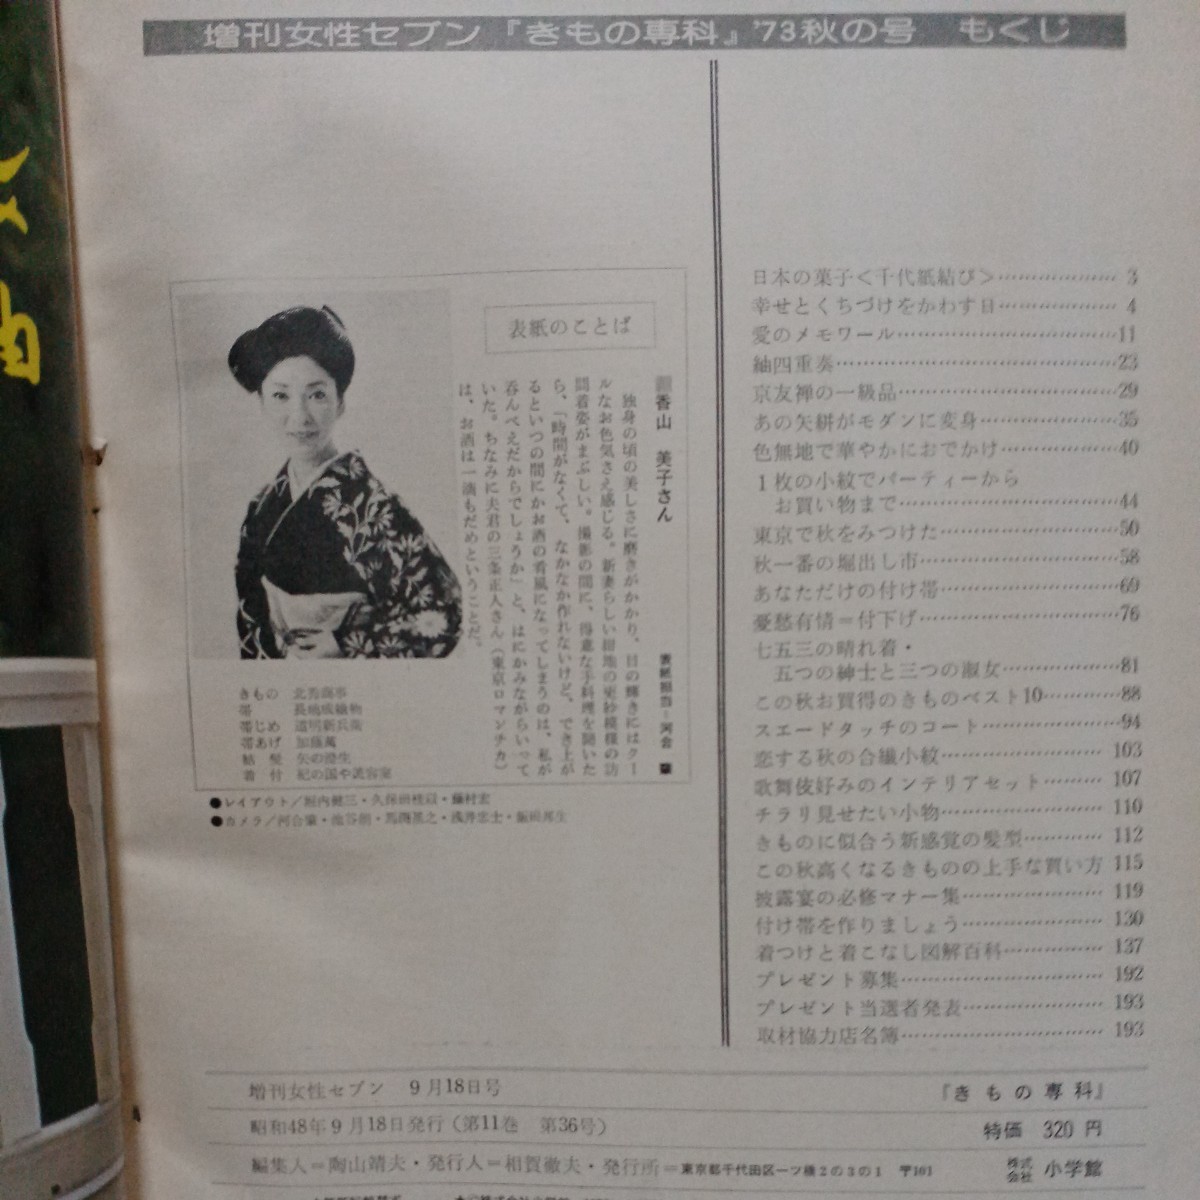 増刊女性セブン『きもの専科』'73秋の号　もくじ
表紙のことば
香山　美子さん
独身の頃の美しさに磨きがかかり、目の輝きにはクー
ルなお色気さえ感じる。新妻らしい紺地の更紗模様の訪
問着姿がまぶしい。撮影の間に、得意な手料理を聞いた
ら、「時間がなくて、なかなか作れないけど、でき上が
るといつの間にかお酒の肴風になってしまうのは、私が
呑んべえだからでしょうか」と、はにかみながらいって
いた。ちなみに夫君の三条正人さん（東京ロマンチカ）
は、お酒は一滴もだめということだ。
表紙担当＝河合　肇
きもの　北秀商事
帯　長地成織物
帯じめ　道明新兵衛
帯あげ　加藤萬
結　髪　矢の澄生
着　付　紀の国や美容室
●レイアウト／堀内健三・久保田桂司・藤村宏
●カメラ／河合肇・池谷朗・馬淵基之・浅井忠士・飯田邦生
日本の菓子＜千代紙結び＞………………3
幸せとくちづけをかわす日………………4
愛のメモワール………………11
紬四重奏………………23
京友禅の一級品………………29
あの矢絣がモダンに変身………………35
色無地で華やかにおでかけ………………40
1枚の小紋でパーティーから
お買い物まで………………44
東京で秋をみつけた………………50
秋一番の堀出し市………………58
あなただけの付け帯………………69
憂愁有情＝付下げ………………76
七五三の晴れ着・
五つの紳士と三つの淑女………………81
この秋お買得のきものベスト10…………88
スエードタッチのコート………………94
恋する秋の合繊小紋………………103
歌舞伎好みのインテリアセット…………107
チラリ見せたい小物………………110
きものに似合う新感覚の髪型…………112
この秋高くなるきものの上手な買い方 115
披露宴の必修マナー集………………119
付け帯を作りましょう………………130
着つけと着こなし図解百科…………137
プレゼント募集………………192
プレゼント当選者発表………………193
取材協力店名簿………………193
増刊女性セブン　9月18日号　『きもの専科』
昭和48年9月18日発行（第11巻　第36号）　特価　320円
編集人＝陶山靖夫・発行人＝相賀徹夫・発行所＝東京都千代田区一ツ橋2の3の1　〒101　株式会社　小学館